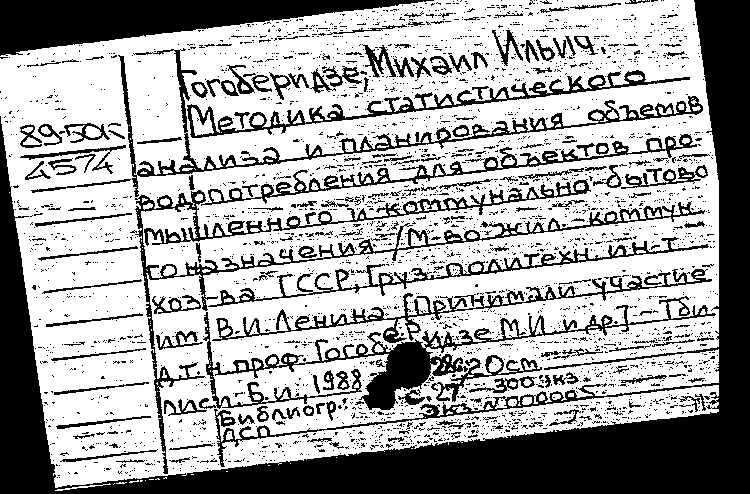 Гогоберидзе, Михаил Ильич.
Методика статистического
89-50К
4574
анализа и планирования объемов
водопотребления для объектов про-
мышленного и коммунально-бытово
го назначения /М-во жил.-коммун.
хоз-ва ГССР, Груз. политехн. ин-т
им. В.И. Ленина [Принимали участие
д.т.н. проф. Гогоберидзе М.И. и др.] - Тби-
лиси: Б.и., 1988 20см.
Библиогр.: с.27 300 экз.
ДСП Экз. №00005.